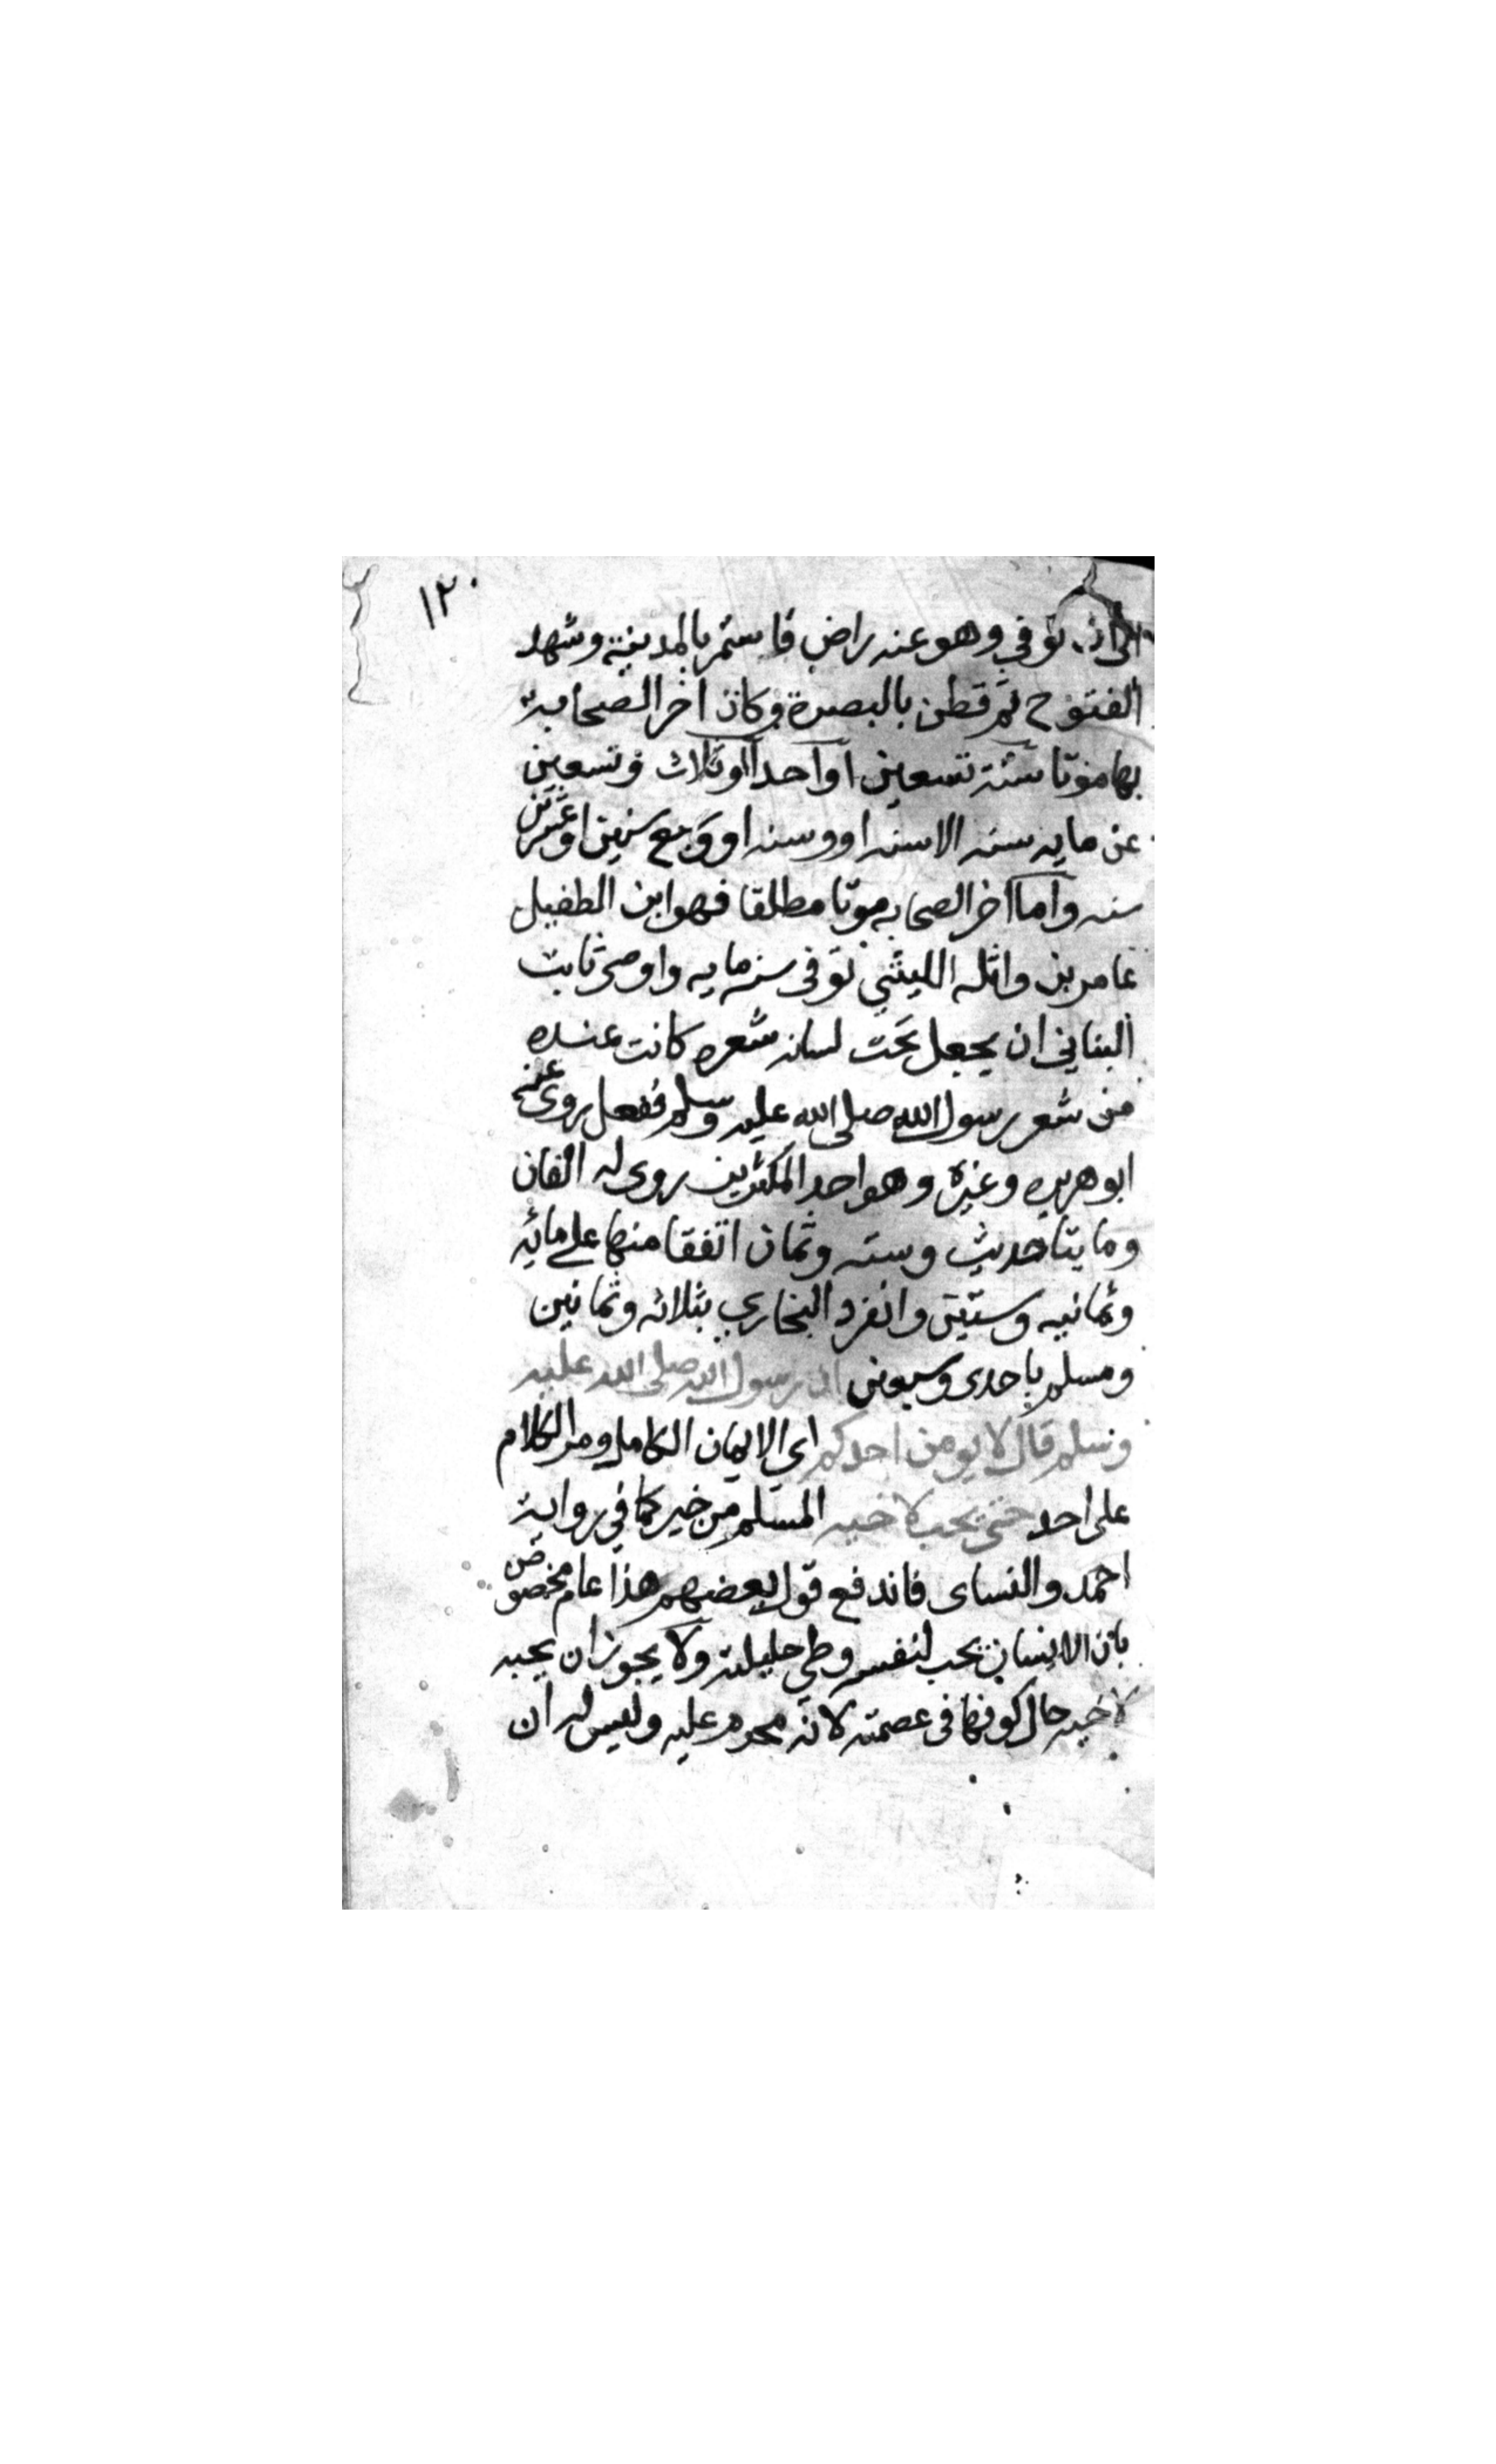 ١٢٠
الى ان توفي وهو عنه راض فاستمر بالمدينة وشهد
الفتوح ثم قطن بالبصرة وكان اخر الصحابة
بها موتا سنة تسعين او احد او ثلاث وتسعين
عن مايه سنه الا سنه او وسنه او وسبع سنين او عشرين
سنه واما اخر الصحابه موتا مطلقا فهو ابن الطفيل
عامر بن واثله الليثي توفى سنه مايه واوصى ثابت
البناني ان يجعل تحت لسانه شعره كانت عنده
من شعر رسول الله صلى الله عليه وسلم ففعل روى عنه
ابو هريره وغيره وهو احد المكثرين روى له الفان
ومايتا حديث وسته وثمان اتفقا منها على مائه
وثمانيه وستين وانفرد البخاري بثلاثه وثمانين
ومسلم باحدى وسبعين ان رسول الله صلى الله عليه
وسلم قال لا يومن احدكم اي الايمان الكامل ومر الكلام
على احد حتى يحب لاخيه المسلم من خير كما في رواية
احمد والنساى فاندفع قول بعضهم هذا عام مخصوص
بان الانسان يحب لنفسه وطي حليلته ولا يجوز ان يحبه
لاخيه حال كونها فى عصمته لانه محرم عليه وليس له ان